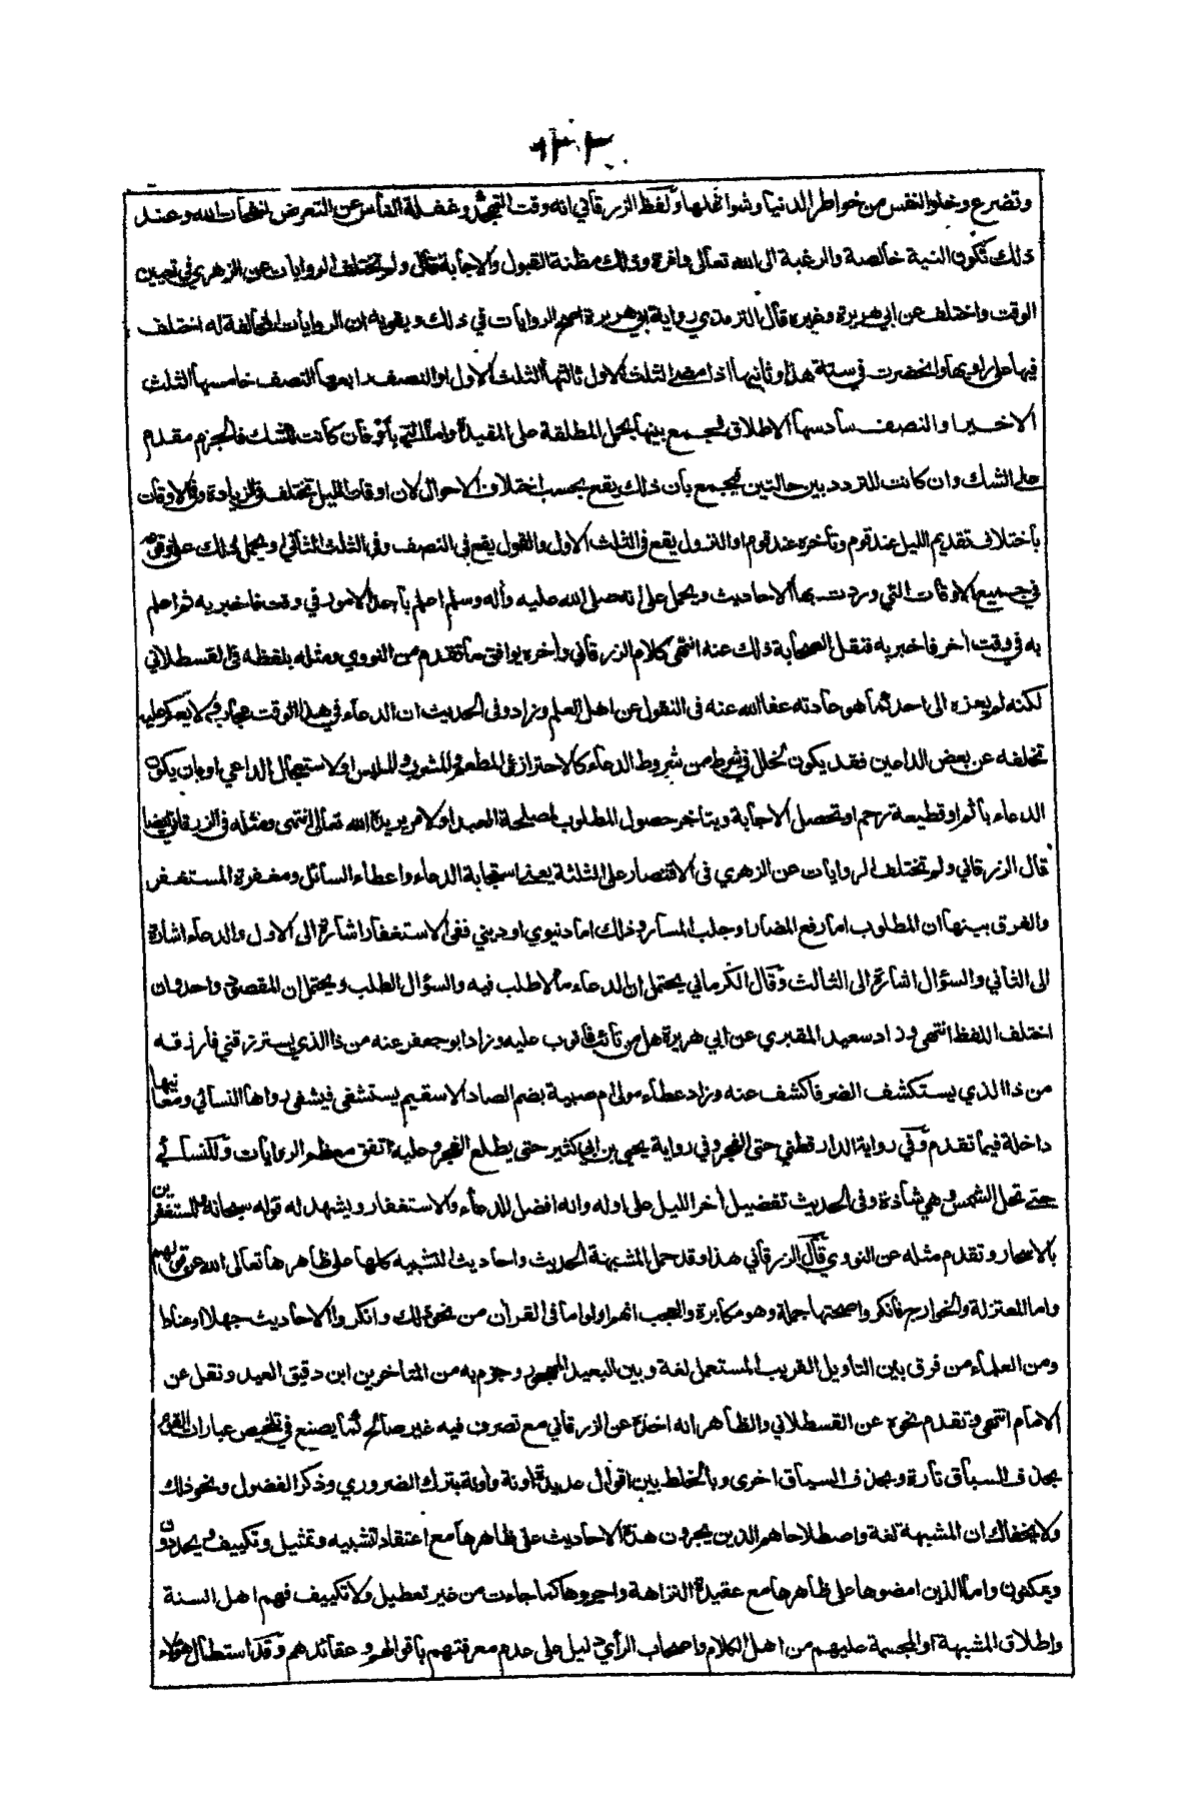 وتضرع وخلو النفس من خواطر الدنيا وشواغلها ولفظ الزرقاني انه وقت التهجد وغفلة الناس عن التعرض لنفحات الله وعند
ذلك تكون النية خالصة والرغبة الى الله تعالى وافرة وذلك مظنة القبول والاجابة قال ولم تختلف الروايات عن الزهري في تعيين
الوقت واختلف عن ابي هريرة وغيره قال الترمذي رواية ابي هريرة اصح الروايات في ذلك ويقويه ان الروايات المخالفة له اختلف
فيها على راويها وانحصرت في ستة هذا وثانيها اذا مضى الثلث الاول ثالثها الثلث الاول او النصف رابعها النصف خامسها الثلث
الاخير او النصف سادسها الاطلاق فجمع بينها بحمل المطلقة على المقيدة واما التي باو فان كانت للشك فالجزم مقدم
على الشك وان كانت للتردد بين حالتين فيجمع بان ذلك يقع بحسب اختلاف الاحوال لان اوقات الليل تختلف في الزيادة وفي الاوقات
باختلاف تقديم الليل عند قوم وتأخره عند قوم او النزول يقع في الثلث الاول والقول يقع في النصف وفي الثلث الثاني او يحمل ذلك على وقوعه
في جميع الاوقات التي وردت بها الاحاديث ويحمل على انه صلى الله عليه وآله وسلم اعلم باحد الامور في وقت فاخبر به ثم اعلم
به في وقت اخر فاخبر به فنقل الصحابة ذلك عنه انتهى كلام الزرقاني واخره يوافق ما تقدم من النووي ومثله بلفظه في القسطلاني
لكنه لم يعزه الى احد كما هو عادته عفا الله عنه في النقول عن اهل العلم وزاد وفي الحديث ان الدعاء في هذا الوقت مجاب ولا يعكر عليه
تخلفه عن بعض الداعين فقد يكون لخلل في شرط من شروط الدعاء كالاحتراز في المطعم والمشرب والملبس او لاستعجال الداعي او بان يكون
الدعاء باثم او قطيعة رحم او تحصل الاجابة ويتأخر حصول المطلوب لمصلحة العبد او لامر يريده الله تعالى انتهى ومثله في الزرقاني ايضا
قال الزرقاني ولم تختلف الروايات عن الزهري في الاقتصار على الثلثة يعني استجابة الدعاء واعطاء السائل ومغفرة المستغفر
والفرق بينها ان المطلوب اما رفع المضار او جلب المسار وذلك اما دنيوي او ديني ففي الاستغفار اشارة الى الاول والدعاء اشارة
الى الثاني والسؤال اشارة الى الثالث وقال الكرماني يحتمل ان الدعاء ما لا طلب فيه والسؤال الطلب ويحتمل ان المقصود واحد وان
اختلف اللفظ انتهى وزاد سعيد المقبري عن ابي هريرة هل من تائب فاتوب عليه وزاد ابو جعفر عنه من ذا الذي يسترزقني فارزقه
من ذا الذي يستكشف الضر فاكشف عنه وزاد عطاء مولى ام صبية بضم الصاد الا سقيم يستشفي فيشفى رواها النسائي ومعانيها
داخلة فيما تقدم وفي رواية الدارقطني حتى الفجر وفي رواية يحيى بن ابي كثير حتى يطلع الفجر وعليه اتفق معظم الروايات وللنسائي
حتى تحل الشمس وهي شاذة وفي الحديث تفضيل آخر الليل على اوله وانه افضل للدعاء والاستغفار ويشهد له قوله سبحانه والمستغفرين
بالاسحار وتقدم مثله عن النووي قال الزرقاني هذا وقد حمل المشبهة الحديث واحاديث التشبيه كلها على ظاهرها تعالى الله عن قولهم
واما المعتزلة والخوارج فانكروا صحتها جملة وهو مكابرة والعجب انهم اولوا ما في القرآن من نحو ذلك وانكروا الاحاديث جهلا او عنادا
ومن العلماء من فرق بين التأويل القريب المستعمل لغة وبين البعيد المهجور وجزم به من المتأخرين ابن دقيق العيد ونقل عن
الامام انتهى وتقدم نحوه عن القسطلاني والظاهر انه اخذه عن الزرقاني مع تصرف فيه غير صالح كما يصنع في تلخيص عبارات القوم
بحذف السباق تارة وبحذف السياق اخرى وبالخلط بين اقوال عديدة آونة وآونة بترك الضروري وذكر الفضول ونحو ذلك
ولا يخفاك ان المشبهة لغة واصطلاحا هم الذين يجرون هذه الاحاديث على ظاهرها مع اعتقاد تشبيه وتمثيل وتكييف ويحددون
ويمكنون واما الذين امضوها على ظاهرها مع عقيدة النزاهة واجروها كما جاءت من غير تعطيل ولا تكييف فهم اهل السنة
واطلاق المشبهة او المجسمة عليهم من اهل الكلام واصحاب الرأي دليل على عدم معرفتهم باقوالهم وعقائدهم وقد استطال هؤلاء